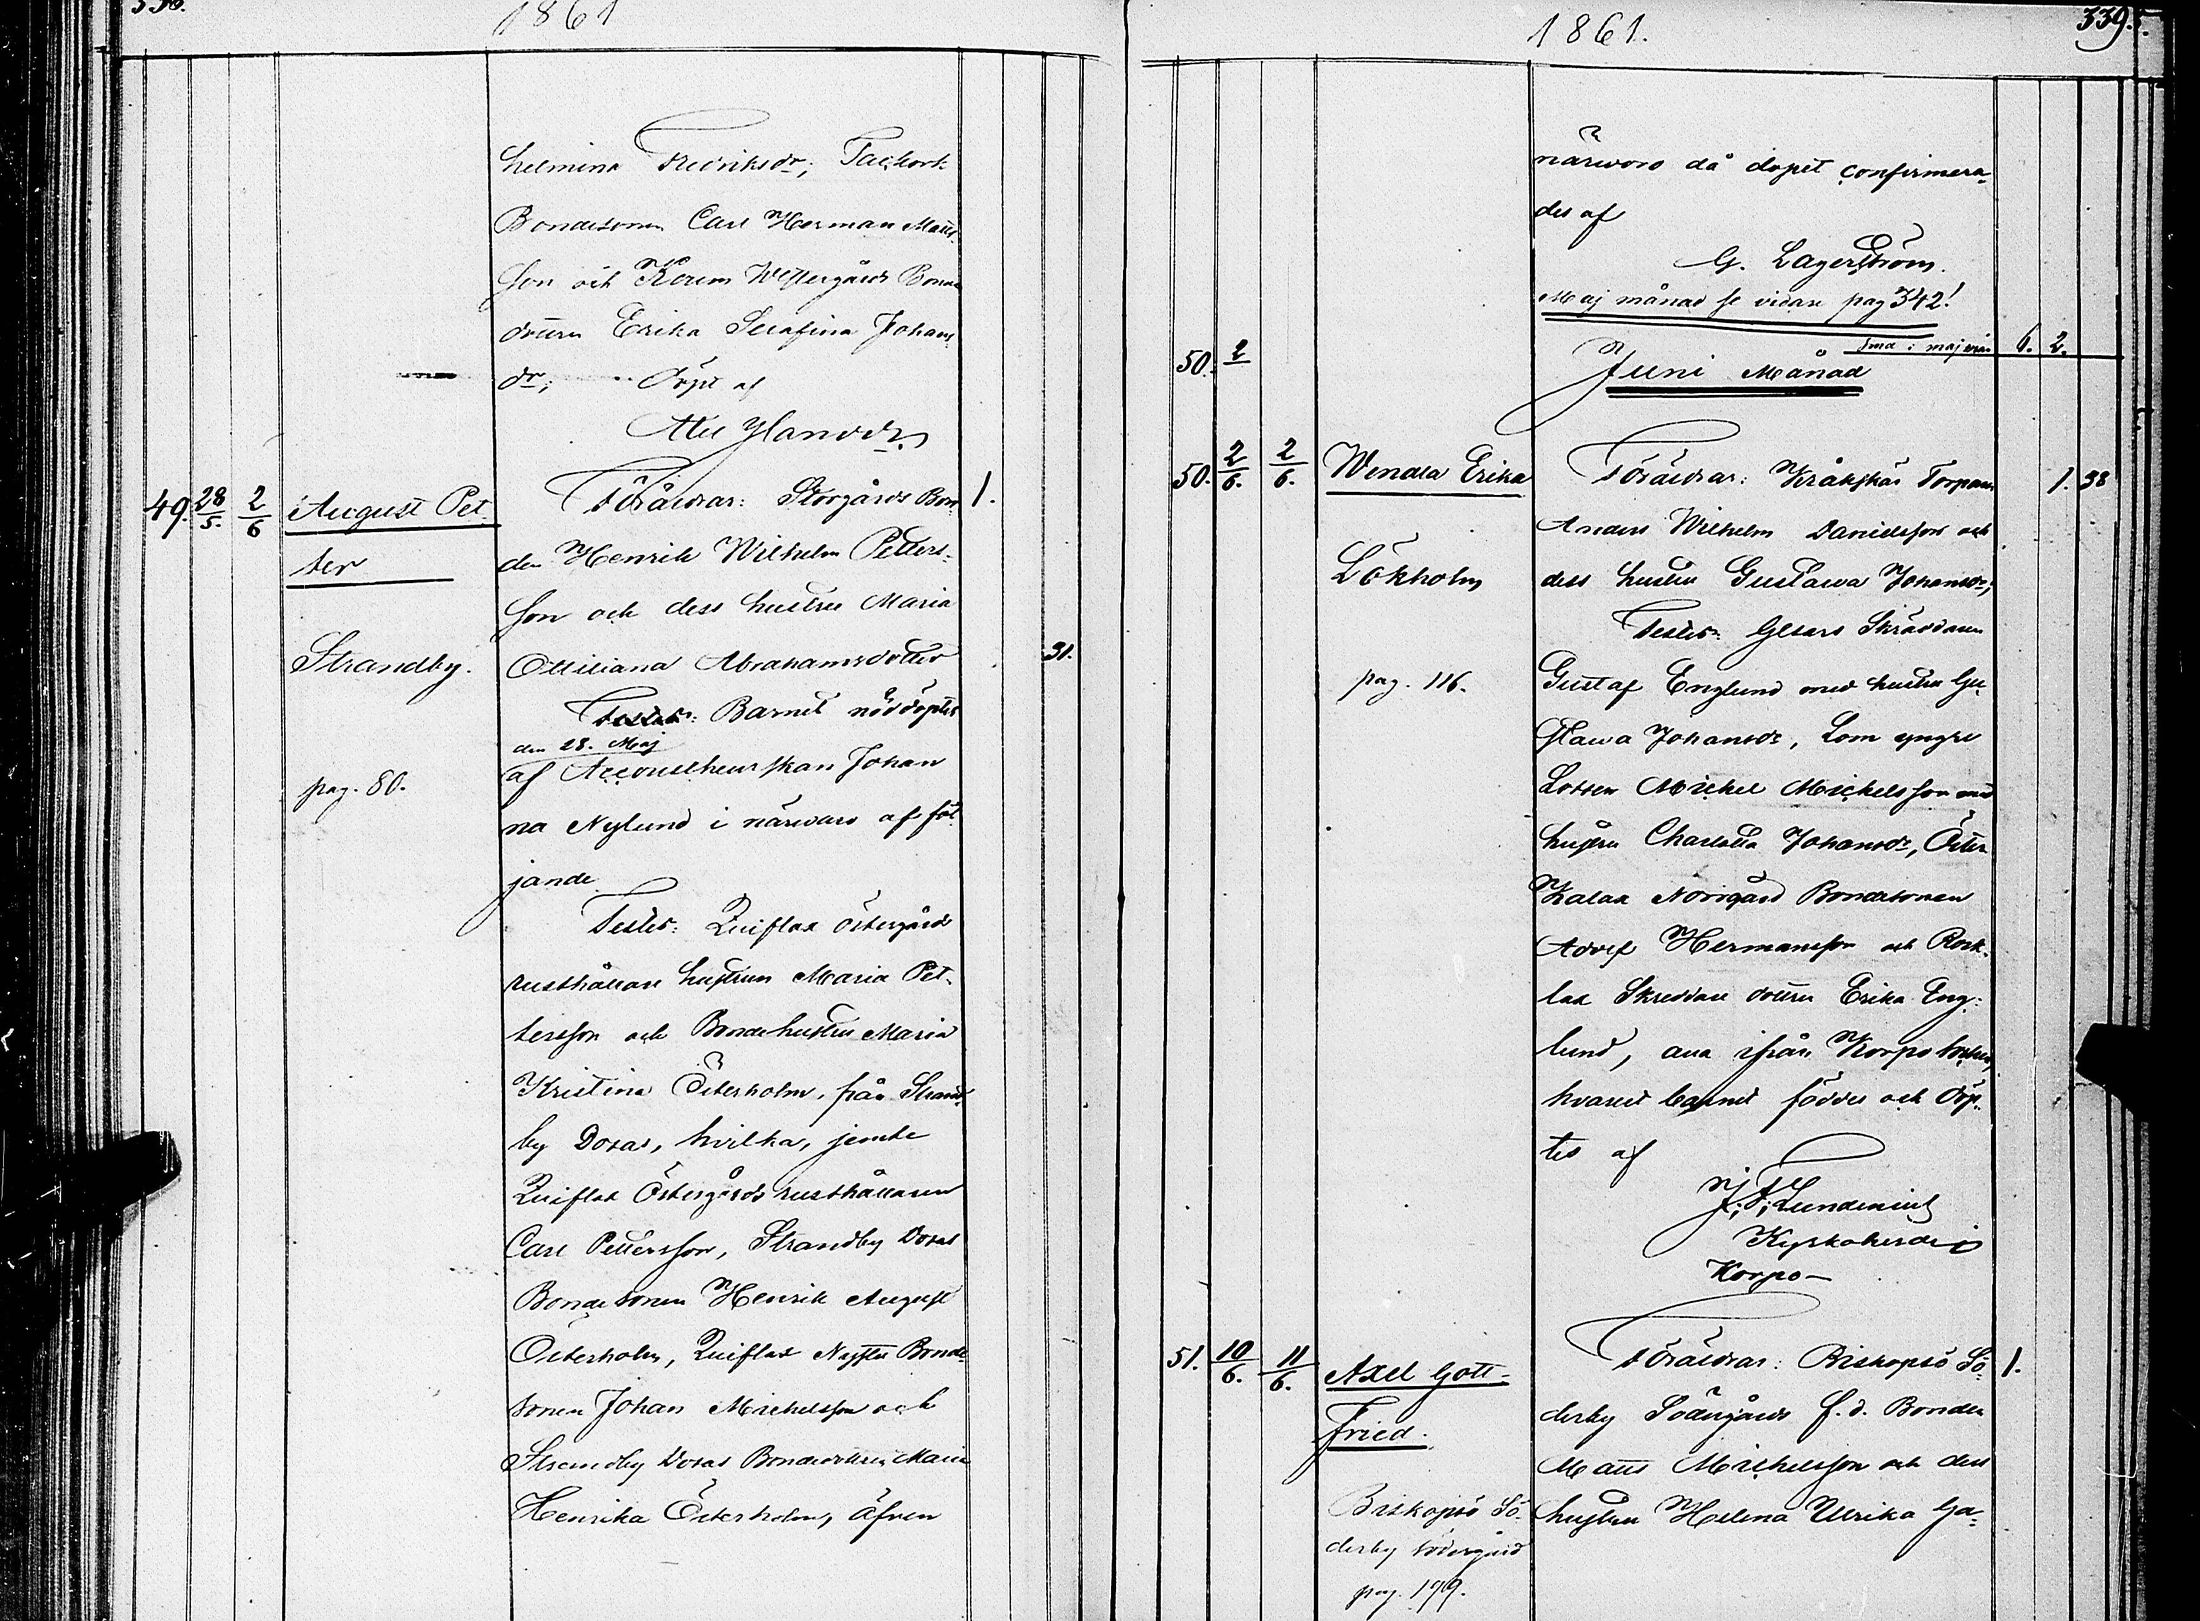 338.
1861
helmina Fredriksdr; Tackork
Bondesonen Carl Herman Matts-
son och Westergårds Bonde
dottren Erika Serafina Johans
dr; Döpt af

49. 28/5. 2/6 August Pet-
ter
Strandby.
pag. 80.
Föräldrar: Storgårds Bon 1.
den Henrik Wilhelm Petters-
son och dess hustru Maria
Ottiliana Abrahamsdotter 31.
Testes: Barnet nöddöptes
den 28. Maj
af Accoucheurskan Johan
na Nylund i närvaro af föl-
jande
Testes: Östergårds
rusthållare hustrun Maria Pet-
tersson och Bondehustru Maria
Kristina Österholm, från Strand
by Doxas, hvilka, jemte
Östergårds rusthållaren
Carl Pettersson, Strandby Doxas
Bondesonen Henrik August
Österholm, Bonde
sonen Johan Michelsson och
Strandby Doxas Bondedottren Maria
Henrika Österholm, äfven
1861.
339.
närvoro då dopet confirmera-
des af
G. Lagerström.
Maj månad se vidare pag 342!
Sma i maj mån 6. 2.
50. 2/
Juni Månad
50. 2/6. 2/6. Wendla Erika
Lökholm
pag. 116.
Föräldrar: Kråkskär Torparn 1. 38
Anders Wilhelm Danielsson och
dess hustru Gustawa Johansdr;
Testes: Skräddaren
Gustaf Englund med hustru Gu-
stawa Johansdr, Lom yngre
Lotsen Michel Michelsson med
hustru Charlotta Johansdr, Öster
Kalax Norrgård Bondesonen
Adolf Hermansson och Rosk-
lax Skreddare dottren Erika Eng-
lund, alla ifrån Korpo socken,
hvarest barnet föddes och döp-
tes af
J. F. Lundenius
Kyrkoherde i
Korpo
51. 10/6. 11/6. Axel Gott-
fried.
Biskopsö Sö-
derby Södergård
pag. 179.
Föräldrar: Biskopsö Sö- 1.
derby Södergårds f. d. Bonden
Matts Michelsson och dess
hustru Helena Ulrika Ga-